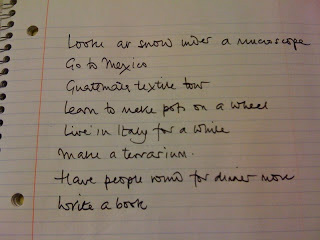 Look at snow under a microscope
Go to Mexico
Guatemala textile tour
Learn to make pots on a wheel
Live in Italy for a while
Make a terrarium.
Have people round for dinner more
Write a book